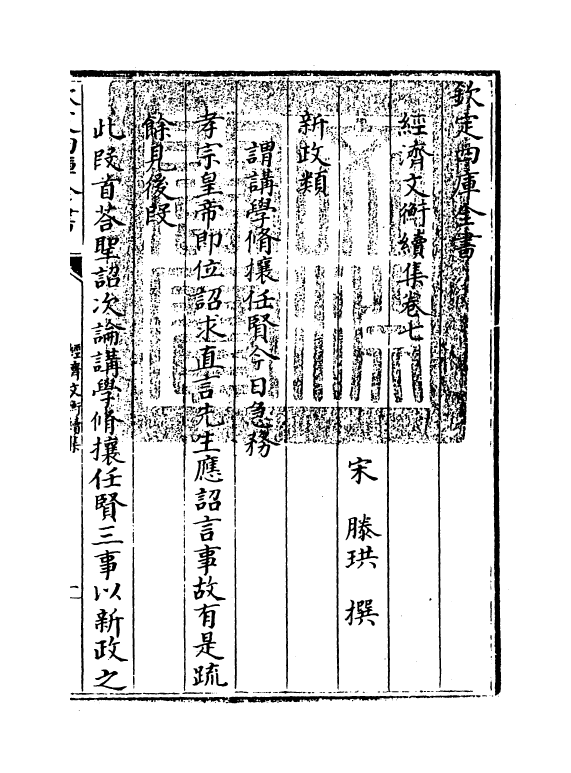 欽定四庫全書
經濟文衡續集卷七
宋 滕珙 撰
新政類
謂講學脩攘任賢今日急務
孝宗皇帝即位詔求直言先生應詔言事故有是疏
餘見後段
此段首荅聖詔次論講學脩攘任賢三事以新政之
欽定四庫全書
經濟文衡續集